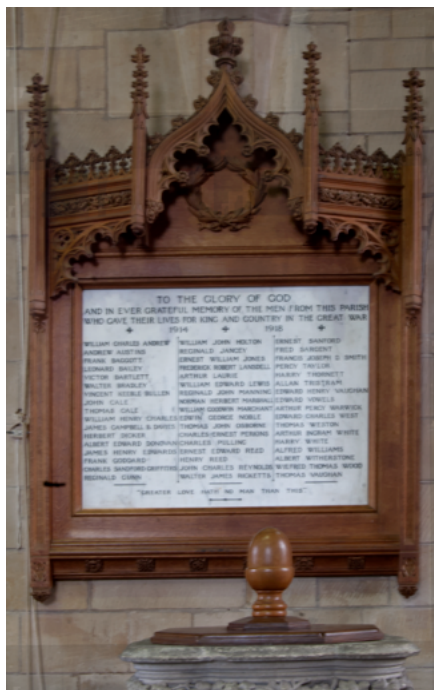 TO THE GLORY OF GOD
AND IN EVER GRATEFUL MEMORY OF THE MEN FROM THIS PARISH
WHO GAVE THEIR LIVES FOR KING AND COUNTRY IN THE GREAT WAR
1914 1918
WILLIAM CHARLES ANDREW
ANDREW AUSTINS
FRANK BAGGOTT
LEONARD BAILEY
VICTOR BARTLETT
WALTER BRADLEY
VINCENT KEEBLE BULLEN
JOHN CALE
THOMAS CALE
WILLIAM HENRY CHARLES
JAMES CAMPBELL S. DAVIES
HERBERT DICKER
ALBERT EDWARD DONOVAN
JAMES HENRY EDWARDS
FRANK GODDARD
CHARLES SANDFORD GRIFFITHS
REGINALD GUNN
WILLIAM JOHN HOLTON
REGINALD JANCEY
ERNEST WILLIAM JONES
FREDERICK ROBERT LANGDELL
ARTHUR LAURIE
WILLIAM EDWARD LEWIS
REGINALD JOHN MANNING
NORMAN HERBERT MARSHALL
WILLIAM GOODWIN MARCHANT
EDWIN GEORGE NOBLE
THOMAS JOHN OSBORNE
CHARLES ERNEST PERKINS
CHARLES POLLING
ERNEST EDWARD REED
HENRY REED
JOHN CHARLES REYNOLDS
WALTER JAMES RICKETTS
ERNEST SANFORD
FRED SARGENT
FRANCIS JOSEPH D SMITH
PERCY TAYLOR
HARRY THORNETT
ALLAN TRISTRAM
EDWARD HENRY VAUGHAN
EDWARD VOWELS
ARTHUR PERCY WARWICK
EDWARD CHARLES WEST
THOMAS WESTON
ARTHUR INGRAM WHITE
HARRY WHITE
ALFRED WILLIAMS
ALBERT WITHERSTONE
WILFRED THOMAS WOOD
THOMAS VAUGHAN
"GREATER LOVE HATH NO MAN THAN THIS"